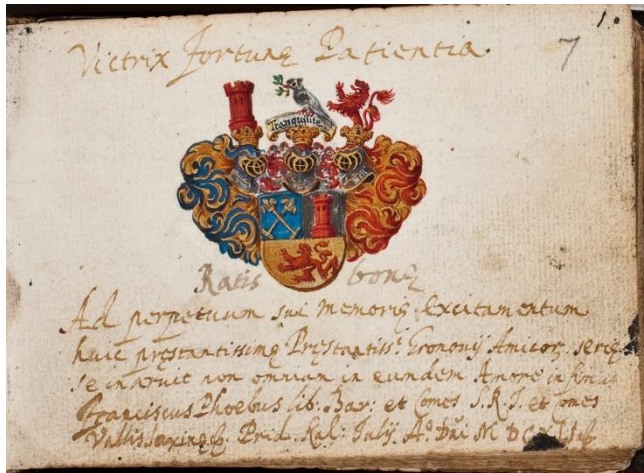 1.
7
Victrix fortunę Patientia
Tranquilité
Ratis bonę
Ad perpetuum sui memorię Excitamentum
huic pręstantissimę Pręstantiss: Gronouij Amicor: seriei
se inseruit non omnium in eundem Amore infimus
Franciscus Phoebus lib: Bar: et Comes S. R. I. et Comes
Prid. Kal: July. Aº Dni M DC